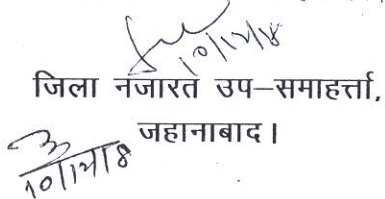 10/12/18
जिला नजारत उप–समाहर्त्ता,
जहानाबाद।
10/12/18